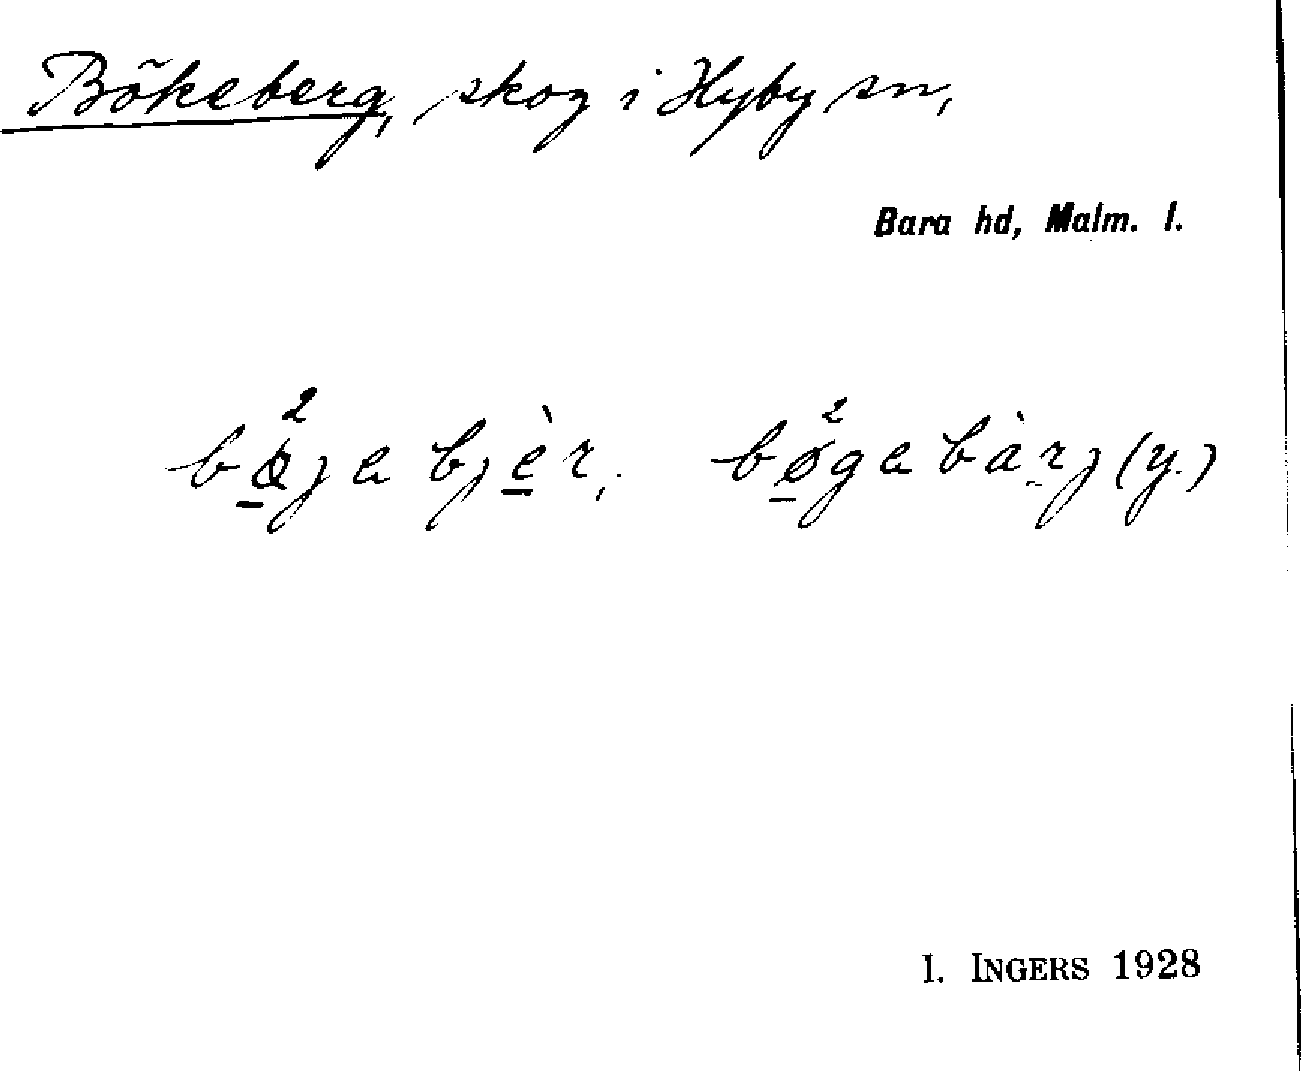 Bökeberg, skog i Hyby sn,
Bara hd, Malm. l.
bø̱²ja bjè̱r, bø̱²ga bàrj (y.)
I. INGERS 1928